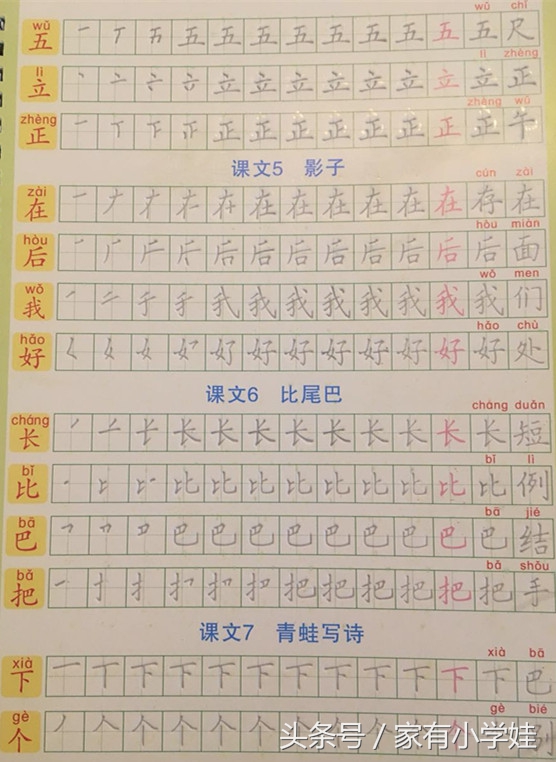 wǔ chǐ
wǔ
五 五 五 五 五 五 五 五 五 五 尺
lì zhèng
lì
立 立 立 立 立 立 立 立 立 正
zhèng wǔ
zhèng
正 正 正 正 正 正 正 正 正 午
课文5 影子
cún zài
zài
在 在 在 在 在 在 在 存 在
hòu miàn
hòu
后 后 后 后 后 后 后 后 后 面
wǒ men
wǒ
我 我 我 我 我 我 我 我 们
hǎo chù
hǎo
好 好 好 好 好 好 好 好 处
课文6 比尾巴
cháng duǎn
cháng
长 长 长 长 长 长 长 长 长 长 短
bǐ lì
bǐ
比 比 比 比 比 比 比 比 比 比 例
bā jié
bā
巴 巴 巴 巴 巴 巴 巴 巴 巴 巴 结
bǎ shǒu
bǎ
把 把 把 把 把 把 把 手
课文7 青蛙写诗
xià bā
xià
下 下 下 下 下 下 下 下 下 下 下 巴
gè bié
gè
个 个 个 个 个 个 个
头条号 / 家有小学娃